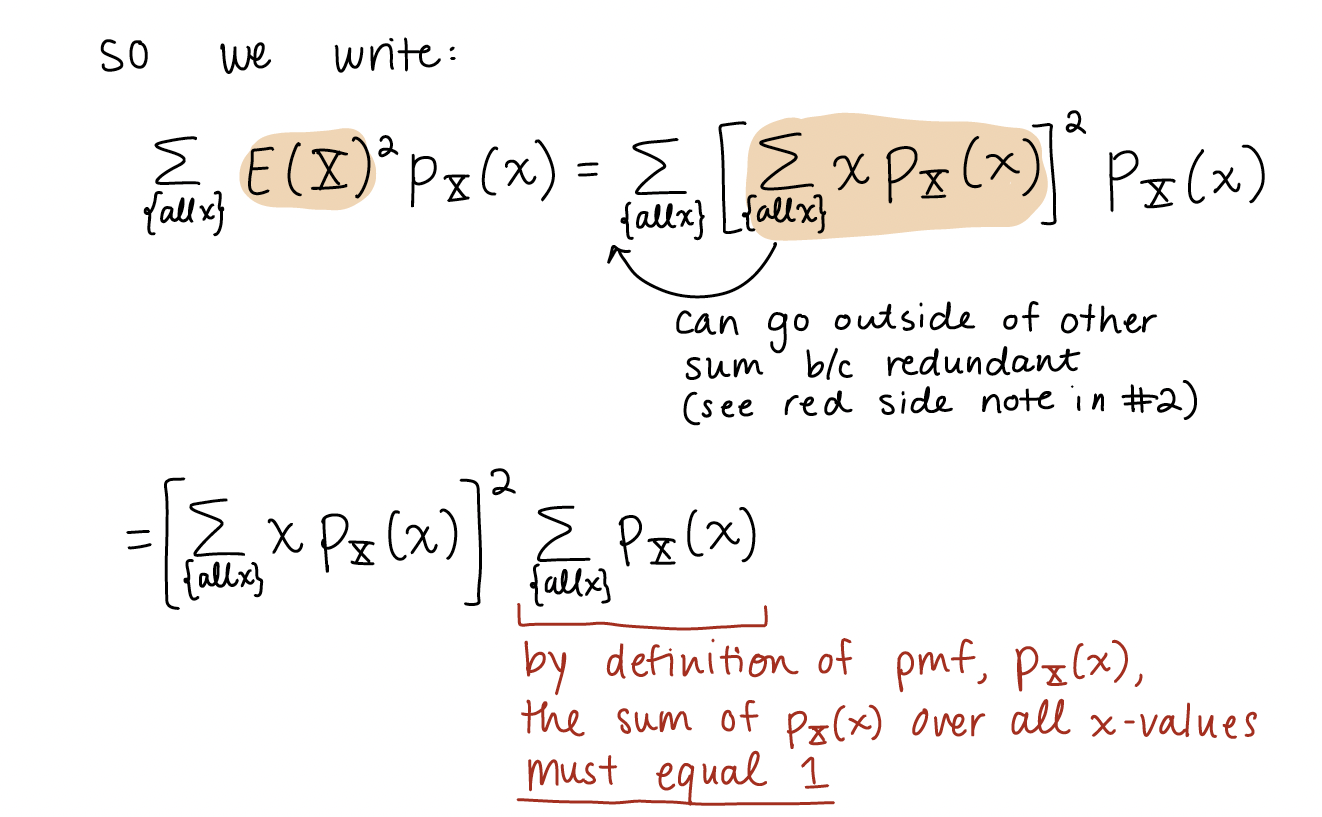 so we write:
∑_{all x} E(X)² p_X(x) = ∑_{all x} [∑_{all x} x p_X(x)]² p_X(x)
can go outside of other
sum b/c redundant
(see red side note in #2)
= [∑_{all x} x p_X(x)]² ∑_{all x} p_X(x)
by definition of pmf, p_X(x),
the sum of p_X(x) over all x-values
must equal 1